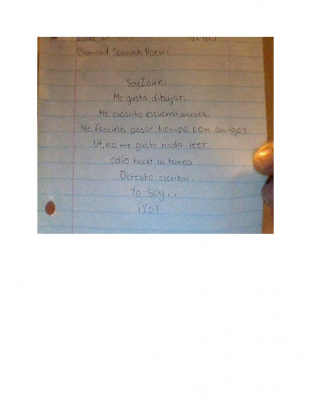 Diamond Spanish Poem
Soy Zaire.
Me gusta dibujar.
Me encanta escuchar música.
Me fascina pasar tiempo con amigos
Uf, no me gusta nada leer
odio hacer la tarea
Detesto escribir.
Yo soy...
¡Yo!